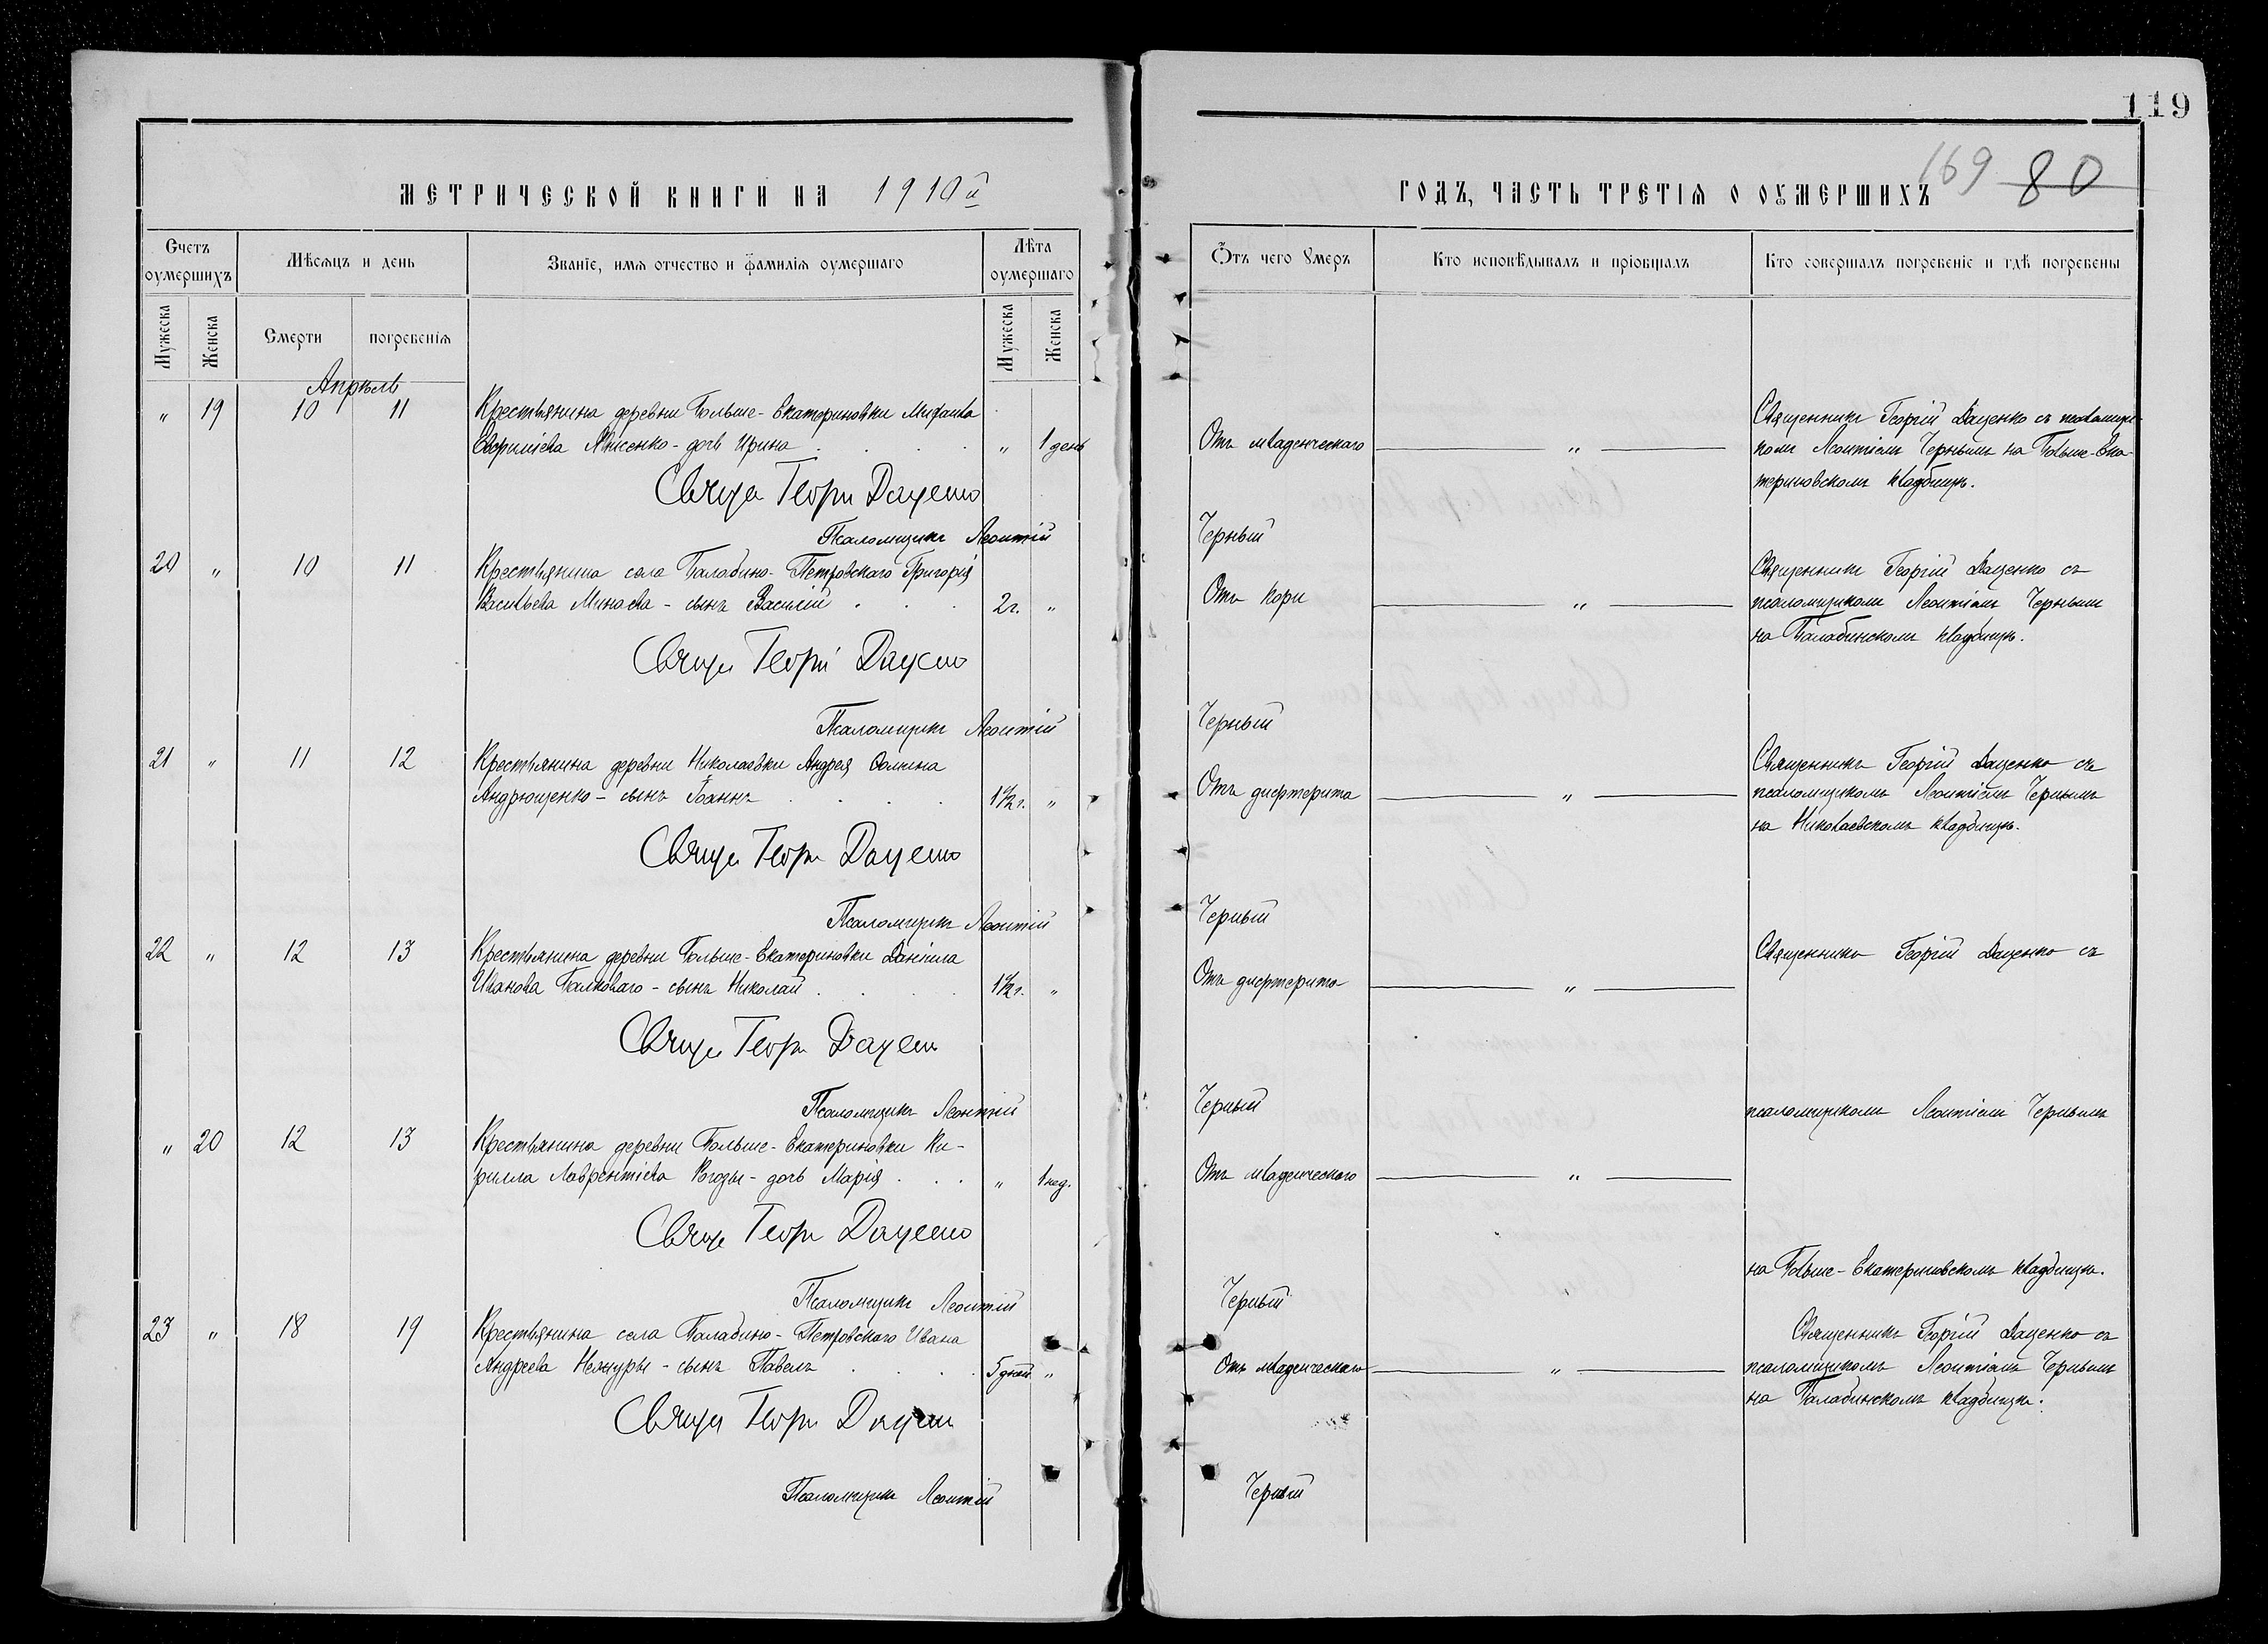 119
169 80
МЕТРИЧЕСКОЙ КНИГИ НА 1910й
ГОДЪ, ЧАСТЬ ТРЕТІЯ О ОУМЕРШИХЪ
Счетъ оумершихъ
Мѣсяцъ и день
Званіе, имя отчество и фамилія оумершаго
Лѣта оумершаго
Мужеска
Женска
Смерти
погребенія
Мужеска
Женска
Ѿтъ чего Умеръ
Кто исповѣдывалъ и пріобщалъ
Кто совершалъ погребеніе и гдѣ погребены
Апрѣль
" 19 10 11 Крестьянина деревни Больше-Екатериновки
дочь Ирина " 1 день
Отъ младенческаго "
Священникъ Георгій Даценко съ псаломщи-
комъ Леонтіемъ Чернымъ на Больше-Ека-
териновскомъ кладбищѣ.
Свящ Георгій Даценко
Псаломщикъ Леонтій Черный
20 " 10 11 Крестьянина села Балабино-Петровскаго Григорія
Васильева Минаева - сынъ Василій 2 г. "
Отъ кори "
Священникъ Георгій Даценко съ
псаломщикомъ Леонтіемъ Чернымъ
на Балабинскомъ кладбищѣ.
Свящ Георгій Даценко
Псаломщикъ Леонтій Черный
21 " 11 12 Крестьянина деревни Николаевки Андрея Ѳомина
Андрющенко - сынъ Іоаннъ 1½ г. "
Отъ дифтерита "
Священникъ Георгій Даценко съ
псаломщикомъ Леонтіемъ Чернымъ
на Николаевскомъ кладбищѣ.
Свящ Георгій Даценко
Псаломщикъ Леонтій Черный
22 " 12 13 Крестьянина деревни Больше-Екатериновки Даніила
Иванова Балковаго - сынъ Николай 1½ г. "
Отъ дифтерита "
Священникъ Георгій Даценко съ
Свящ Георгій Даценко
Псаломщикъ Леонтій Черный
псаломщикомъ Леонтіемъ Чернымъ
" 20 12 13 Крестьянина деревни Больше-Екатериновки Ки-
рилла Лаврентіева Рогозы - дочь Марія " 1 нед.
Отъ младенческаго "
Свящ Георгій Даценко
на Больше-Екатериновскомъ кладбищѣ.
Псаломщикъ Леонтій Черный
23 " 18 19 Крестьянина села Балабино-Петровскаго Ивана
Андреева - сынъ Павелъ 5 дней "
Отъ младенческаго "
Священникъ Георгій Даценко съ
псаломщикомъ Леонтіемъ Чернымъ
на Балабинскомъ кладбищѣ.
Свящ Георгій Даценко
Псаломщикъ Леонтій Черный